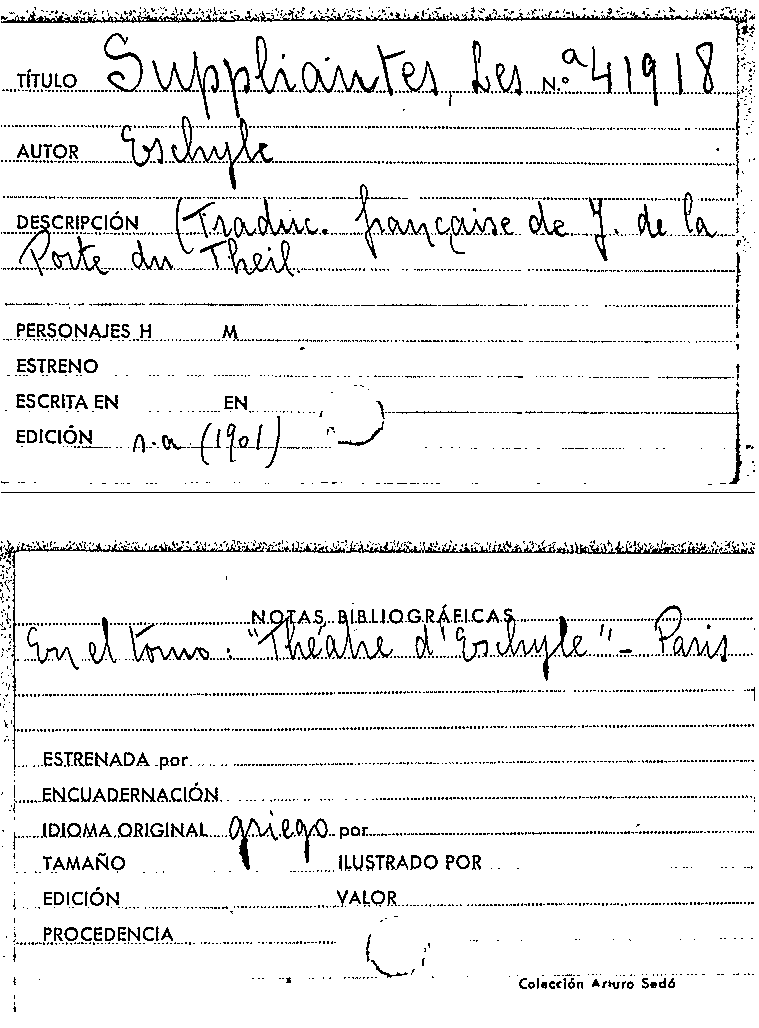 TÍTULO Suppliantes, Les N.º a 41918
AUTOR Eschyle
DESCRIPCIÓN (Traduc. française de J. de la
Porte du Theil.
PERSONAJES H M
ESTRENO
ESCRITA EN EN
EDICIÓN s.a (1901)
NOTAS BIBLIOGRÁFICAS
En el tomo: "Théatre d'Eschyle" - Paris
ESTRENADA por
ENCUADERNACIÓN
IDIOMA ORIGINAL griego por
TAMAÑO ILUSTRADO POR
EDICIÓN VALOR
PROCEDENCIA
Colección Arturo Sedó